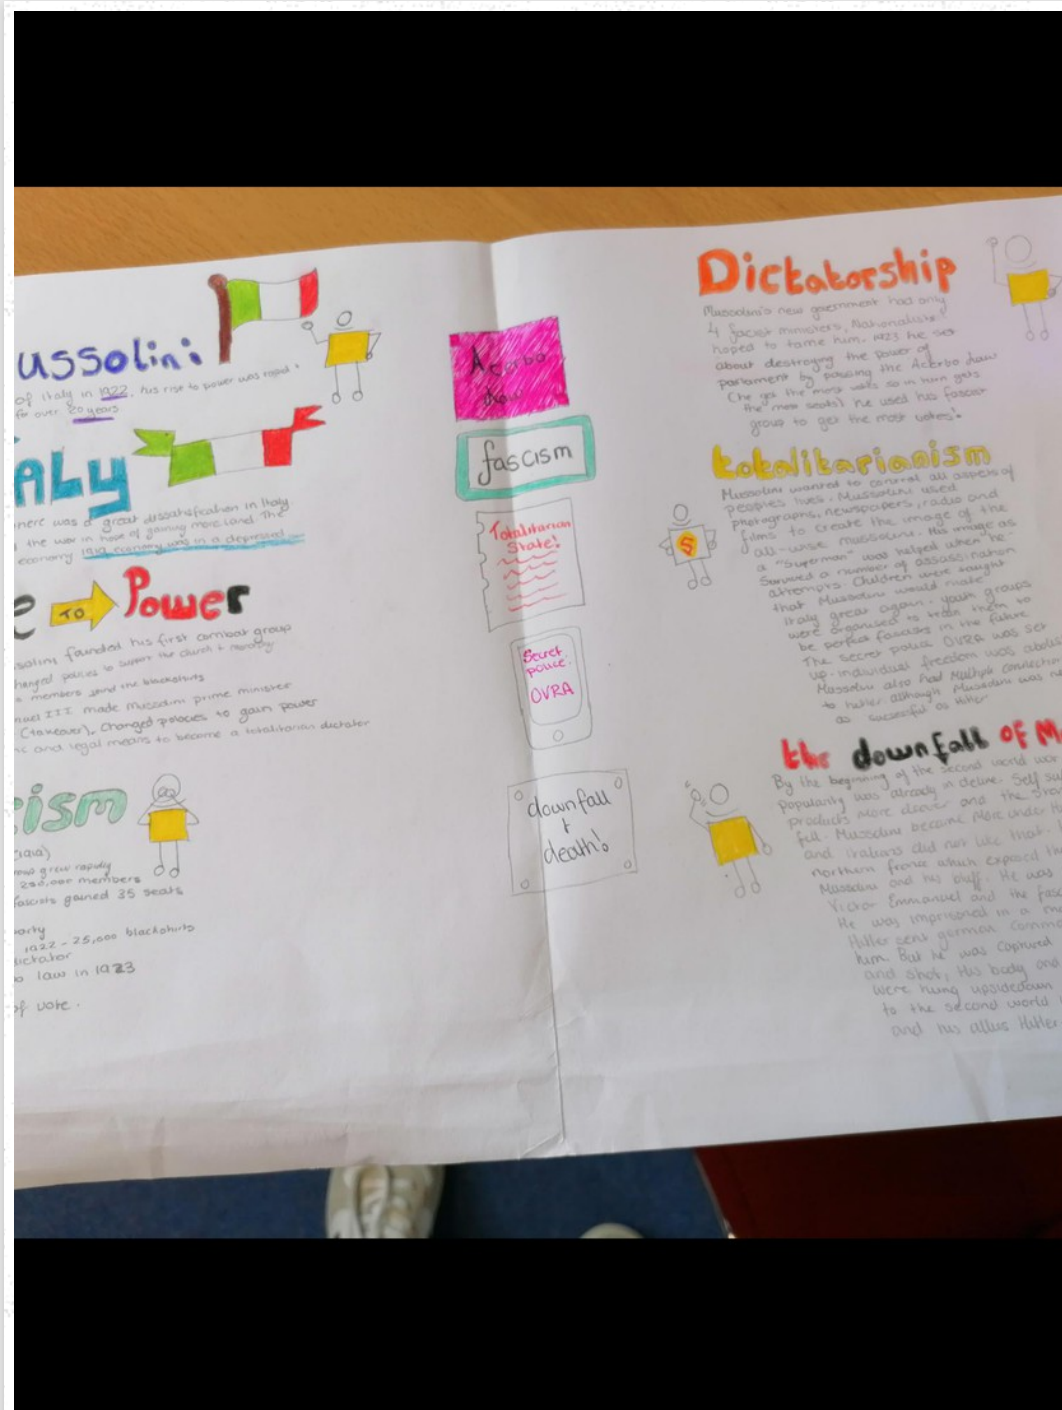 ussolini
of Italy in 1922, his rise to power was rapid &
for over 20 years.
ALY
there was a great dissatisfication in Italy
the war in hope of gaining more land. The
economy 1919 economy was in a depressed
e TO Power
ssolini founded his first combat group
hanged policies to support the church + monarchy
members joind the blackshirts
nuel III made mussolini prime minister
(takeover). Changed polocies to gain power
ic and legal means to become a totalitarian dictator
cism
(1919)
grew rapidly
250,000 members
fascists gained 35 seats
party
1922 - 25,000 blackshirts
dictator
o law in 1923
of vote.
Acerbo
Law
fascism
Totalitarian
State!
Secret
police:
OVRA
downfall
+
death!
Dictatorship
Mussolini's new government had only
4 facist ministers, Nationalists
hoped to tame him. 1923 he set
about destroying the power of
parliament by passing the Acerbo Law
(he got the most votes so in turn gets
the most seats) he used his fascist
group to get the most votes!
totalitarianism
Mussolini wanted to control all aspects of
peoples lives. Mussolini used
photographs, newspapers, radio and
films to create the image of the
all-wise mussolini. His image as
a "Superman" was helped when he
Survived a number of assassination
attempts. Children were taught
that Mussolini would make
Italy great again. youth groups
were organised to train them to
be perfect fascists in the future
The secret police OVRA was set
up-individual freedom was abolis
Mussolini also had Multiple connection
to hitler although Mussolini was no
as sucessful as Hitler
the downfall OF M
By the beginning of the second world war
popularity was already in decline. Self su
products more dearer and the
fell. Mussolini became more under H
and italians did not like that.
northern france which exposed th
Mussolini and his bluff. He was
Victor Emmanuel and the fasc
He was imprisoned in a mo
Hitler sent german comma
him. But he was captured
and shot, His body and
were hung upsidedown
to the second world
and his allies Hitler